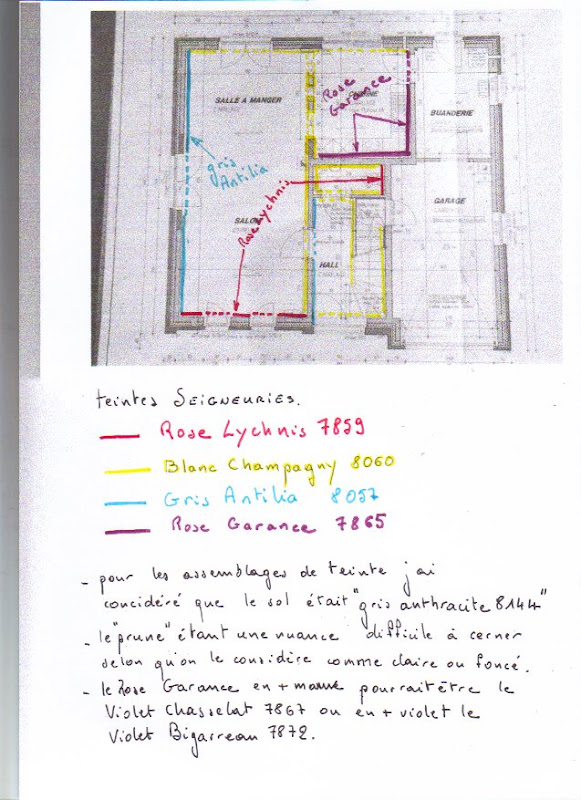 SALLE A MANGER
Rose
Garance
BUANDERIE
gris
Antilia
Rose Lychnis
GARAGE
HALL
teintes SEIGNEURIES.
Rose Lychnis 7859
Blanc Champagny 8060
Gris Antilia 8057
Rose Garance 7865
- pour les assemblages de teinte j'ai
concidéré que le sol était "gris anthracite 8144"
- le "prune" étant une nuance difficile à cerner
selon qu'on le considère comme claire ou foncé.
- le Rose Garance en + mauve pourrait être le
Violet Chasselat 7867 ou en + violet le
Violet Bigarreau 7872.